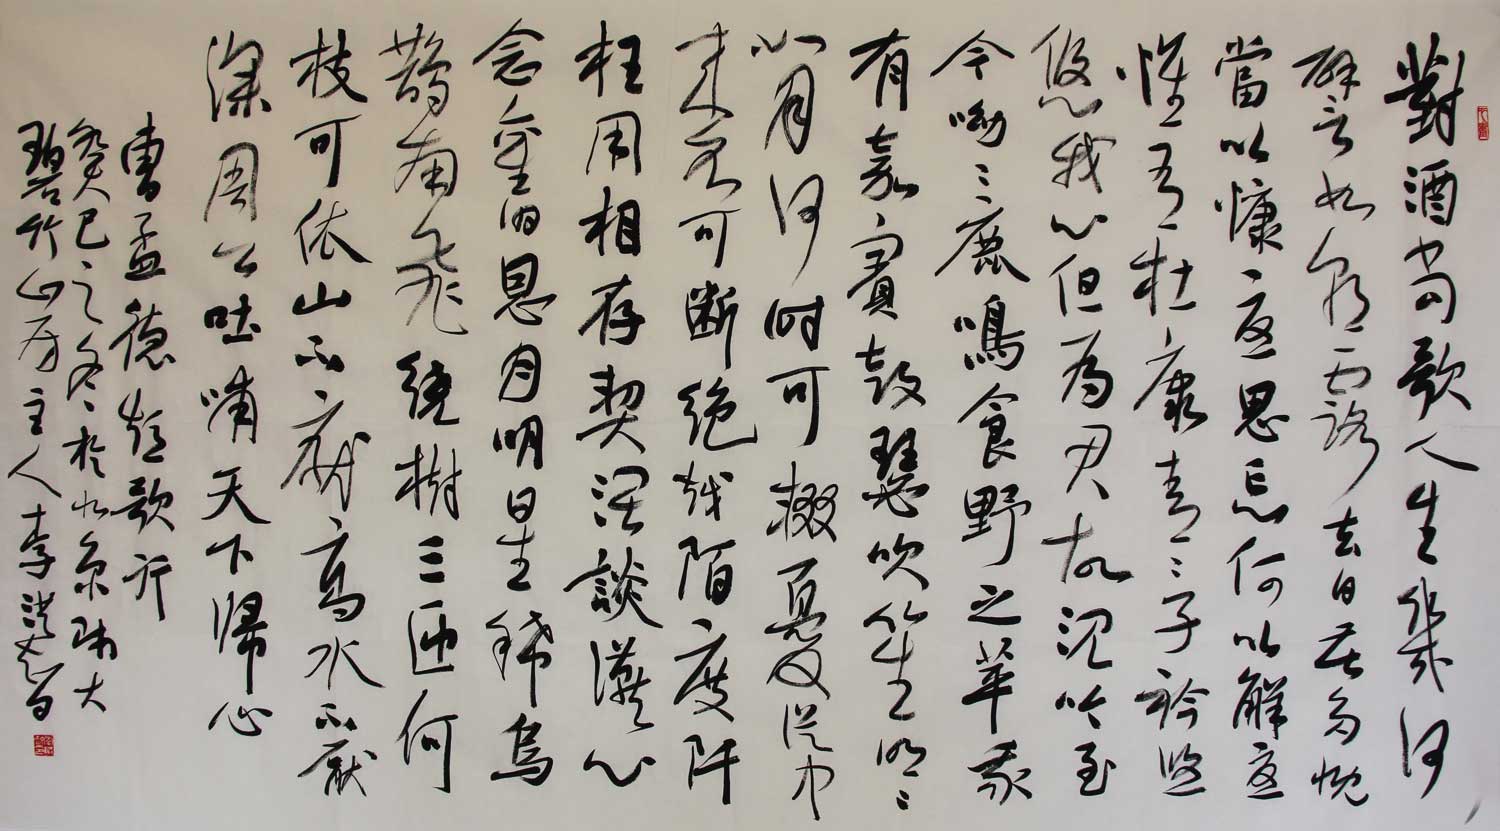 對酒當歌人生幾何
譬如朝露去日苦多慨
當以慷憂思忘何以解憂
惟有杜康青〻子衿悠
悠我心但為君故沉吟至
今呦〻鹿鳴食野之苹我
有嘉賓鼓瑟吹笙明〻
如月何時可掇憂從中
來不可斷絕越陌度阡
枉用相存契闊談讌心
念舊恩月明星稀烏
鵲南飛繞樹三匝何
枝可依山不厭高水不厭
深周公吐哺天下歸心
曹孟德短歌行
癸巳之冬於北京師大
碧竹山房主人李洪智